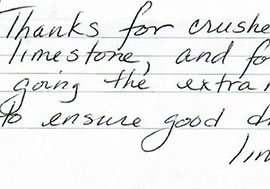 Thanks for crushe
limestone, and fo
going the extra
to ensure good